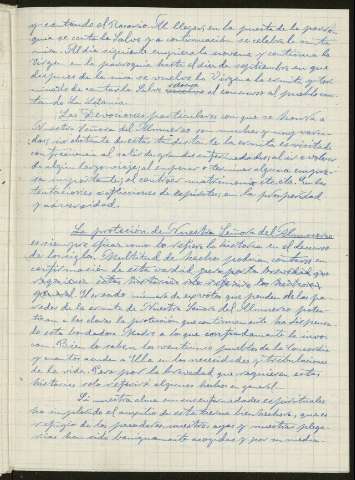 y cantando el Rosario. Al llegar, en la puerta de la parro-
quia se canta la Salve y a continuación se celebra la santa
misa. Al dia siguiente empieza la novena y continua la
Virgen en la parroquia hasta el dia de septiembre en que
despues de la misa se vuelve la Virgen a la ermita, y ter-
minada de cantar la Salve el concurso al pueblo can-
tando la Letania.
Las Devociones particulares con que se honra a
Nuestra Señora del son muchas y muy varia-
das; no obstante de esto la ermita es visitada
con frecuencia al salir de grandes enfermedades, al ir o volver
de algun largo viaje, al empezar o terminar alguna empre-
sa importante, al contraer matrimonio etc. etc. En las
tentaciones o aflicciones de espíritu, en la prosperidad
y adversidad.
La protección de Nuestra Señora del
es siempre eficaz como lo refiere la historia en el decurso
de los siglos. Multitud de hechos podrian contarse en
confirmación de esta verdad, pero por la brevedad que
requieren estas historias solo referiré los
general. Un sin número de exvotos que penden de las pa-
redes de la ermita de Nuestra Señora del
tizan a las claras la protección que continuamente ha dispensa-
do esta bondadosa Madre a los que confiadamente la invo-
can. Bien lo saben los vecinos pueblos de la
y cuantos acuden a Ella en las necesidades y tribulaciones
de la vida. Pero por la brevedad que requieren estas
historias solo referiré algunos hechos en general.
Si nuestra alma con sus enfermedades espirituales
ha implorado el amparo de esta tierna bienhechora, que es
refugio de los pecadores, nuestros ayes y nuestras plega-
rias han sido benignamente acogidas y por su media-